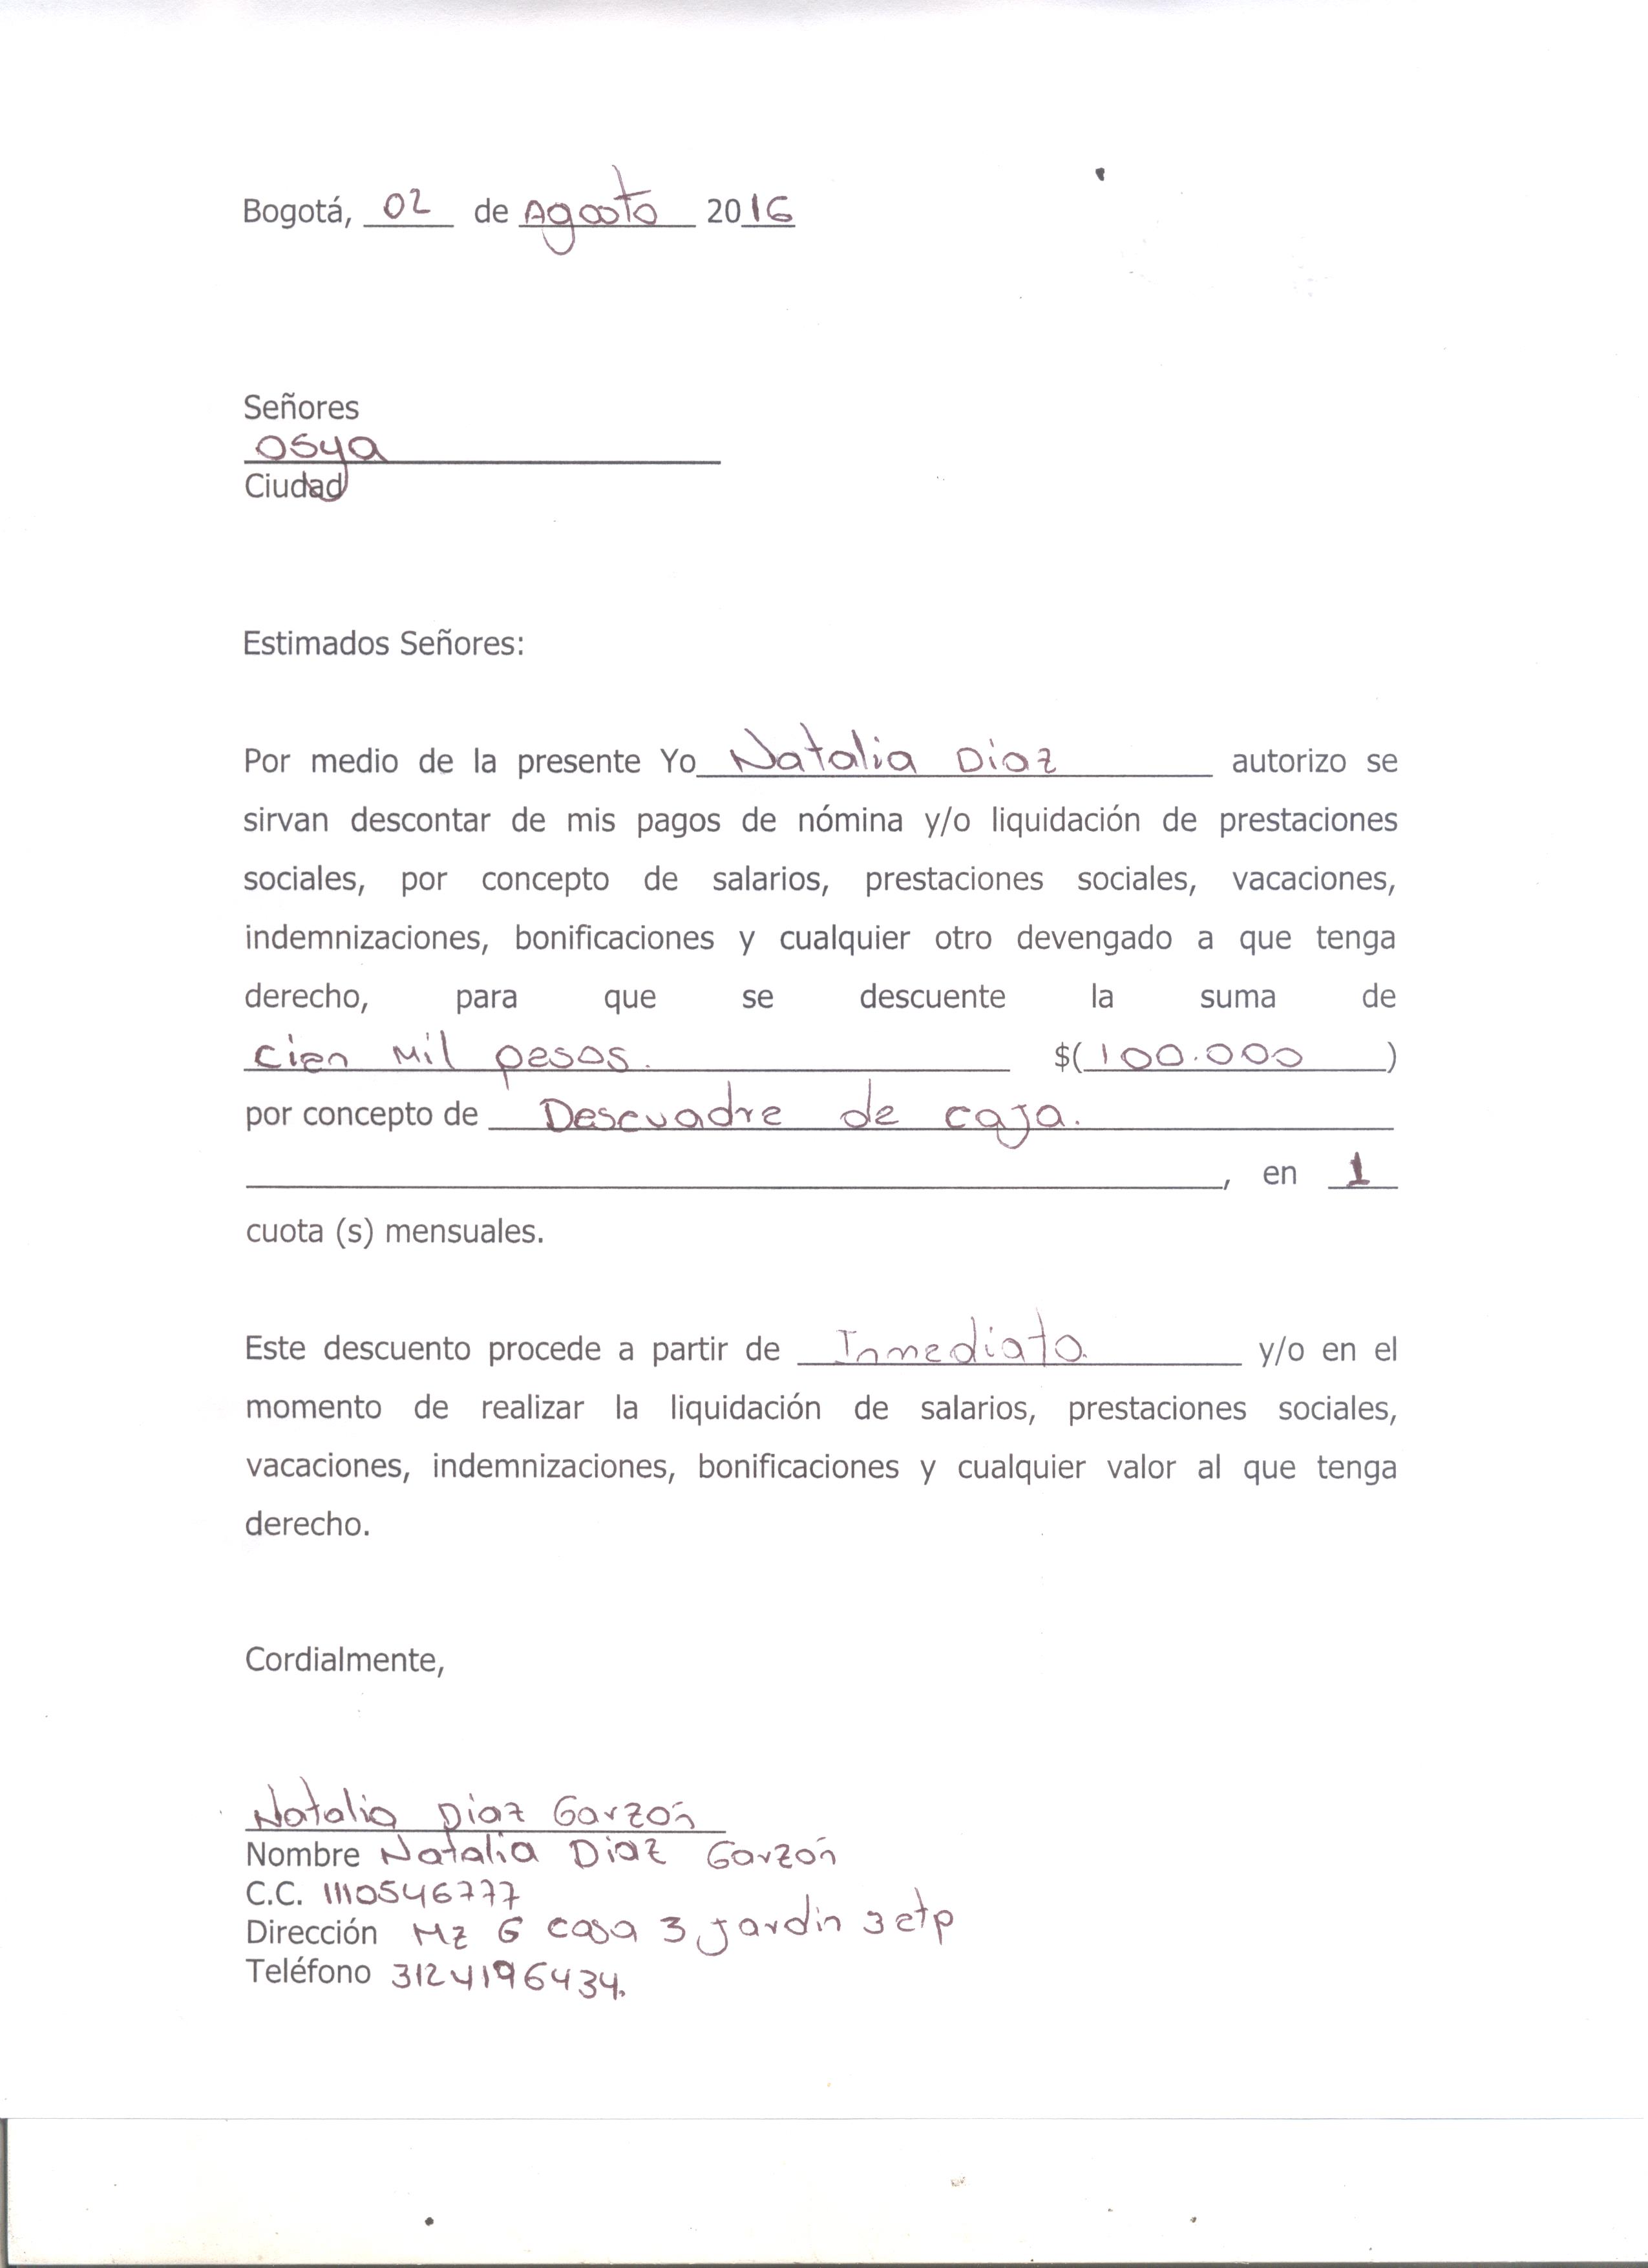 Bogotá, 02 de Agosto 2016
Señores
Osya
Ciudad
Estimados Señores:
Por medio de la presente Yo Natalia Diaz autorizo se
sirvan descontar de mis pagos de nómina y/o liquidación de prestaciones
sociales, por concepto de salarios, prestaciones sociales, vacaciones,
indemnizaciones, bonificaciones y cualquier otro devengado a que tenga
derecho, para que se descuente la suma de
Cien Mil pesos. $(100.000)
por concepto de Descuadre de caja.
, en 1
cuota (s) mensuales.
Este descuento procede a partir de Inmediato. y/o en el
momento de realizar la liquidación de salarios, prestaciones sociales,
vacaciones, indemnizaciones, bonificaciones y cualquier valor al que tenga
derecho.
Cordialmente,
Natalia Diaz Garzón
Nombre Natalia Diaz Garzón
C.C. 1110546777
Dirección Mz G casa 3 Jardin 3 etp
Teléfono 3124196434.